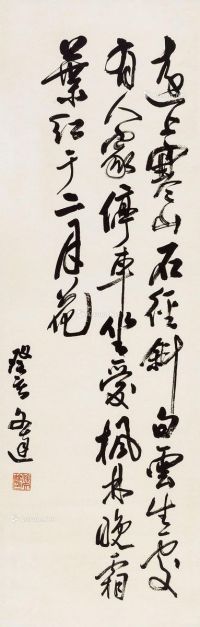 遠上寒山石徑斜白雲生處
有人家停車坐愛楓林晚霜
葉紅于二月花
癸亥